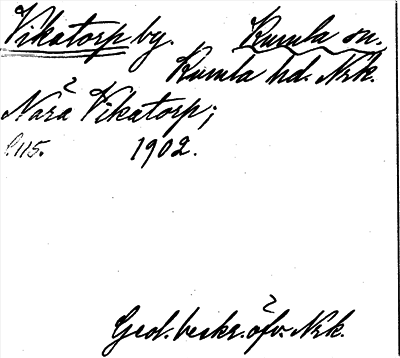 Vikatorp by. Kumla sn.
Kumla hd. Nrk.
Nära Vikatorp;
s. 115. 1902.
Geol. beskr. öfv. Nrk.